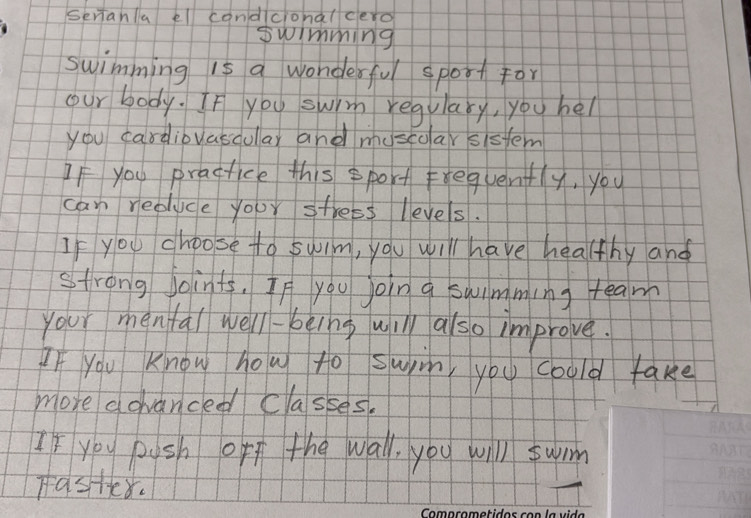 señanla el condicional cero
swimming
swimming is a wonderful sport For
our body. IF you swim regulary, you hel
you cardiovascular and muscular sistem
IF you practice this sport Frequently, you
can reduce your stress levels.
IF you choose to swim, you will have healthy and
strong joints. IF you join a swimming team
your mental well-being will also improve.
IF you know how to swim, you could take
more advanced classes.
IF you push off the wall, you will swim
Faster.
Comprometidos con la vida